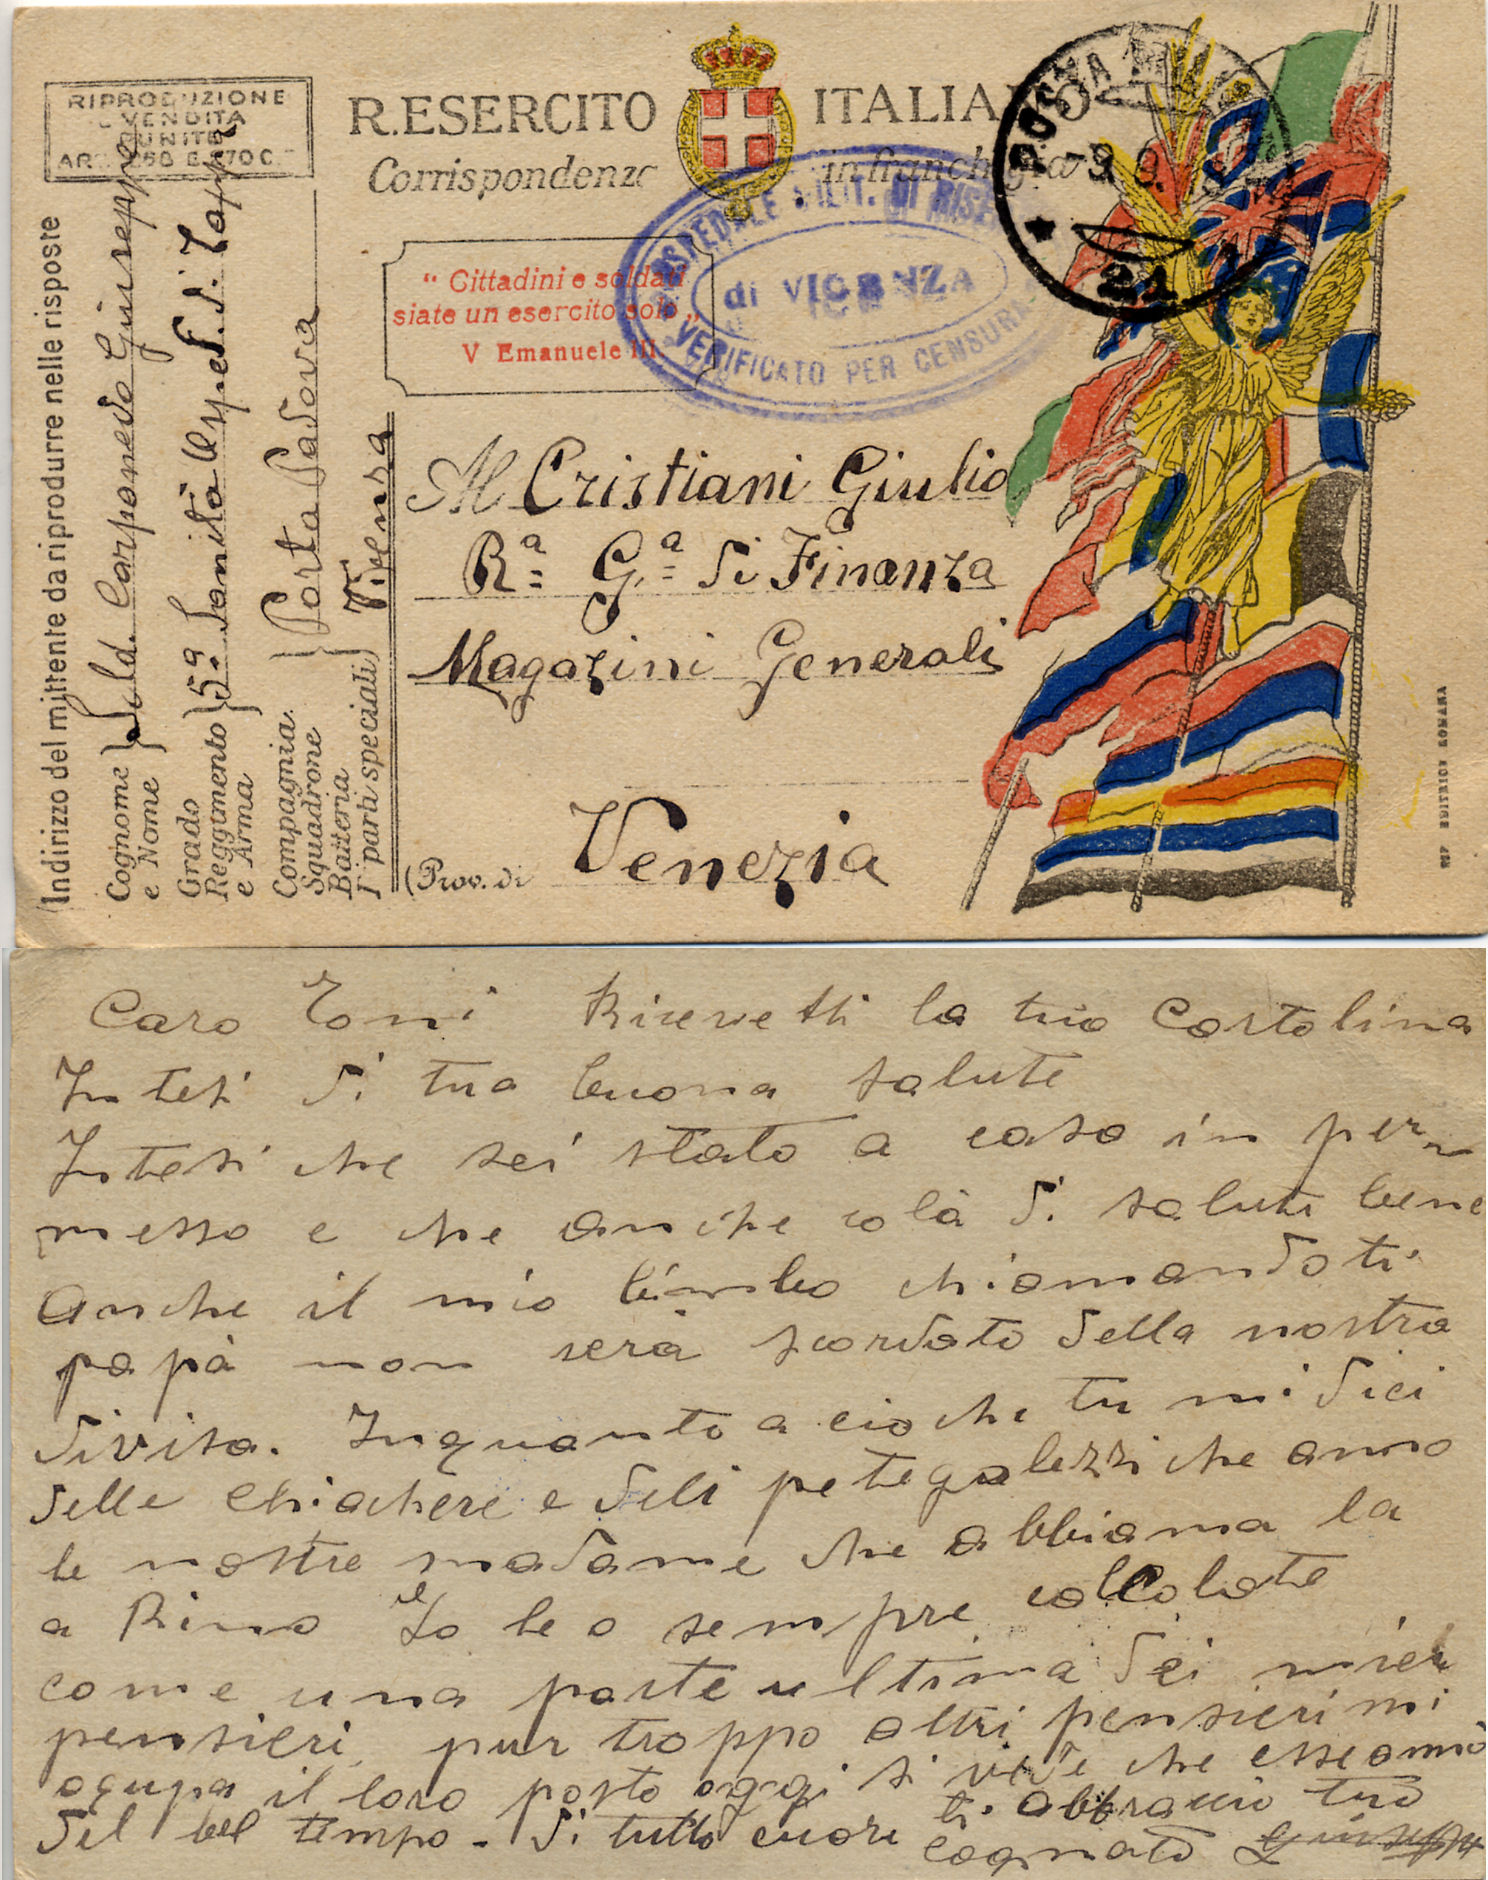 RIPRODUZIONE
E VENDITA
PUNITE
R. ESERCITO ITALIANO
Corrispondenza in franchigia
POSTA
-9.9.
21
OSPEDALE MILIT. DI
di VICENZA
VERIFICATO PER CENSURA
“ Cittadini e soldati
siate un esercito solo „
V Emanuele III
Indirizzo del mittente da riprodurre nelle risposte
Cognome
e Nome
Sold. Carponedo Giuseppe
Grado
Reggimento
e Arma
5ª Sanità Osped.
Compagnia
Squadrone
Batteria
Porta Padova
(parti speciali)
Vicenza
Al Cristiani Giulio
Rª Gª di Finanza
Magazini Generali
(Prov. di Venezia
EDITRICE ROMANA
Caro Toni Ricevetti la tua Cartolina
Intesi di tua buona salute
Intesi che sei stato a casa in per
messo e che anche colà di saluti bene
Anche il mio bimbo chiamandoti
papà non serà scordato della nostra
divisa. Inquanto a cio che tu mi dici
delle chiachere e deli petegolezzi che anno
le nostre madame che abbiama la
a Rimo Io le o sempre calcolate
come una parte ultima dei miei
pensieri pur troppo altri pensieri mi
ocupa il loro posto oggi si vede che esse anno
del bel tempo - di tutto cuore ti abbraccio tuo
cognato Giuseppe